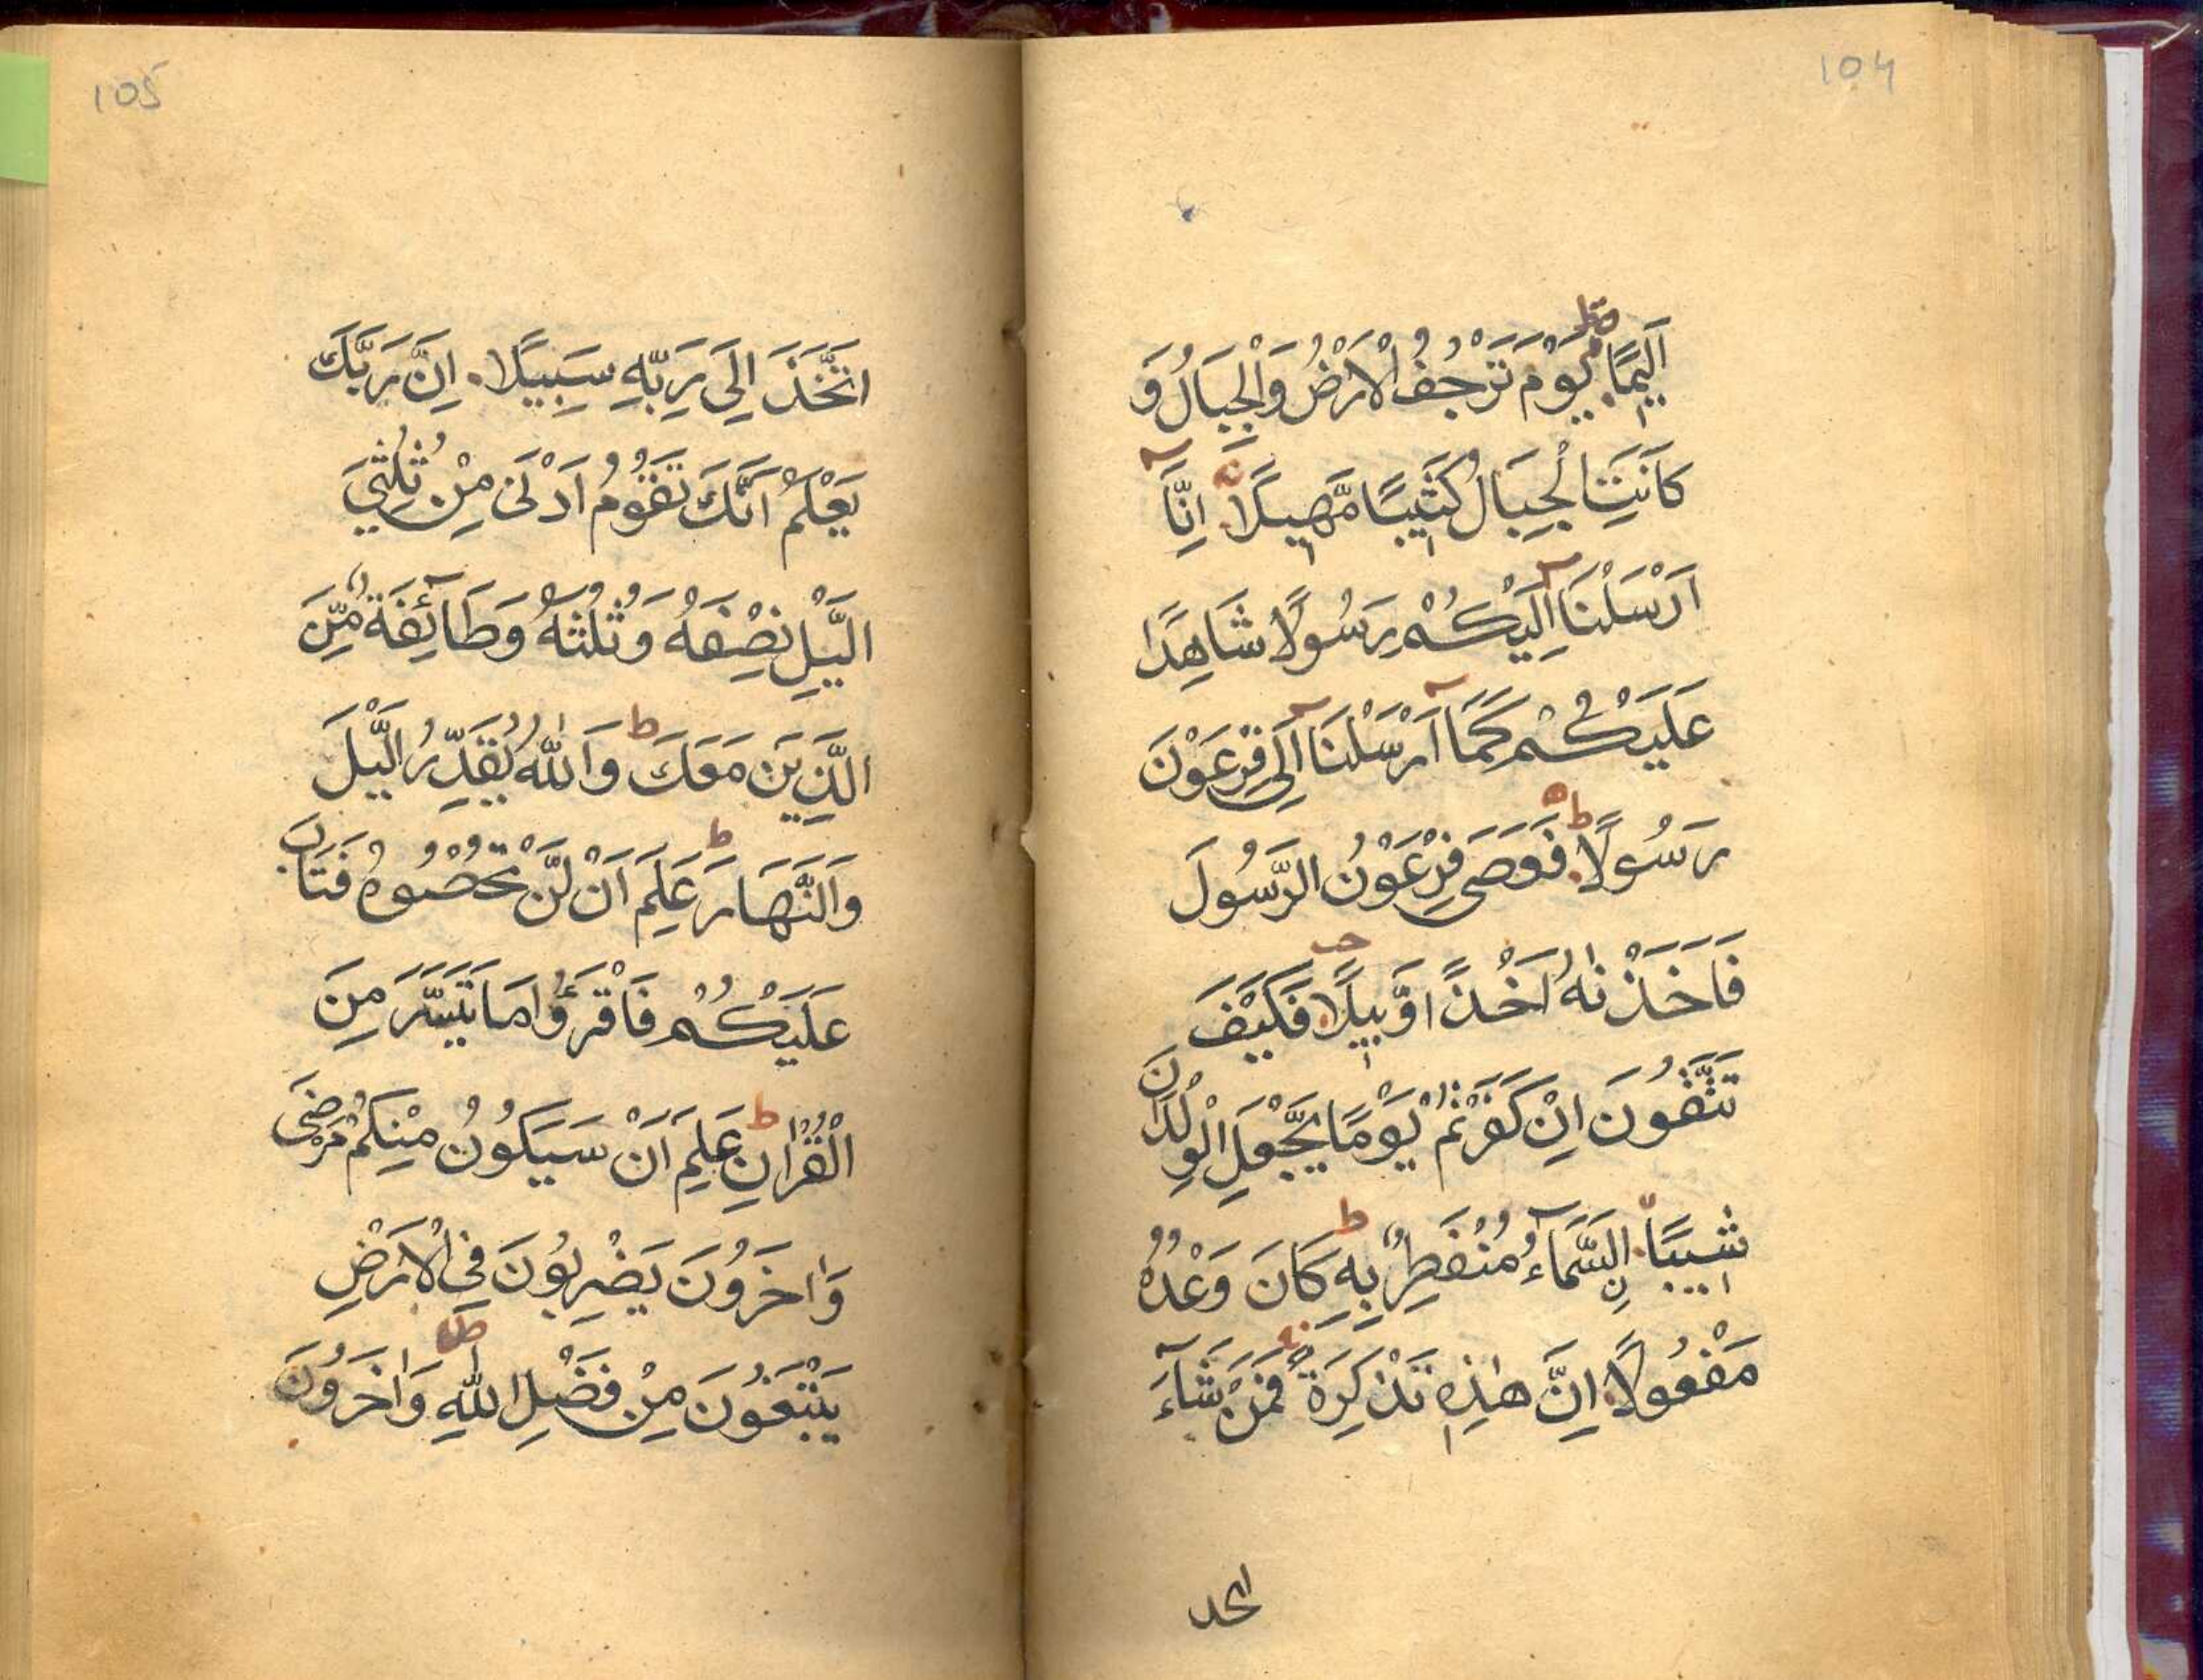 104
اَلِيْمًا يَوْمَ تَرْجُفُ الْاَرْضُ وَالْجِبَالُ وَ
كَانَتِ الْجِبَالُ كَثِيْبًا مَّهِيْلًا اِنَّآ
اَرْسَلْنَآ اِلَيْكُمْ رَسُوْلًا شَاهِدًا
عَلَيْكُمْ كَمَآ اَرْسَلْنَآ اِلٰى فِرْعَوْنَ
رَسُوْلًا فَعَصٰى فِرْعَوْنُ الرَّسُوْلَ
فَاَخَذْنٰهُ اَخْذًا وَّبِيْلًا فَكَيْفَ
تَتَّقُوْنَ اِنْ كَفَرْتُمْ يَوْمًا يَّجْعَلُ الْوِلْدَانَ
شِيْبًا نِ السَّمَآءُ مُنْفَطِرٌ بِهٖ كَانَ وَعْدُهٗ
مَفْعُوْلًا اِنَّ هٰذِهٖ تَذْكِرَةٌ فَمَنْ شَآءَ
105
اتَّخَذَ اِلٰى رَبِّهٖ سَبِيْلًا اِنَّ رَبَّكَ
يَعْلَمُ اَنَّكَ تَقُوْمُ اَدْنٰى مِنْ ثُلُثَيِ
الَّيْلِ نِصْفَهٗ وَثُلُثَهٗ وَطَآئِفَةٌ مِّنَ
الَّذِيْنَ مَعَكَ وَاللّٰهُ يُقَدِّرُ الَّيْلَ
وَالنَّهَارَ عَلِمَ اَنْ لَّنْ تُحْصُوْهُ فَتَابَ
عَلَيْكُمْ فَاقْرَءُوْا مَا تَيَسَّرَ مِنَ
الْقُرْاٰنِ عَلِمَ اَنْ سَيَكُوْنُ مِنْكُمْ مَرْضٰى
وَاٰخَرُوْنَ يَضْرِبُوْنَ فِى الْاَرْضِ
يَبْتَغُوْنَ مِنْ فَضْلِ اللّٰهِ وَاٰخَرُوْنَ